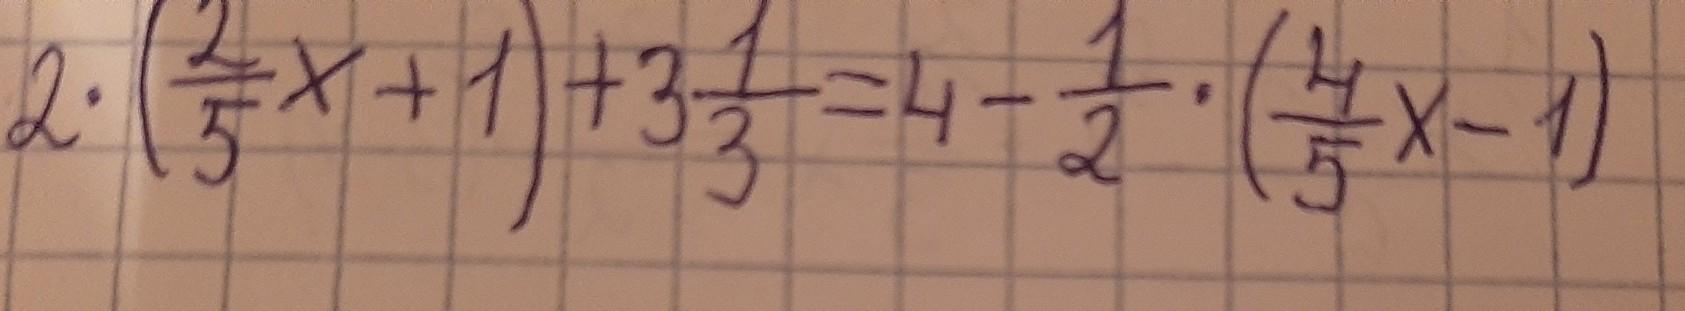 2·(2/5 x + 1) + 3 1/3 = 4 - 1/2 · (4/5 x - 1)